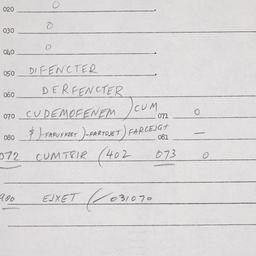 020 0
030 0
040 0
050 DIFENCTER
060 DERFENCTER
070 CUDEMOFENEM ) CUM 071 0
080 FARCEJGT 081 —
072 CUMTRIR (402 073 0
900 EJXET (031070